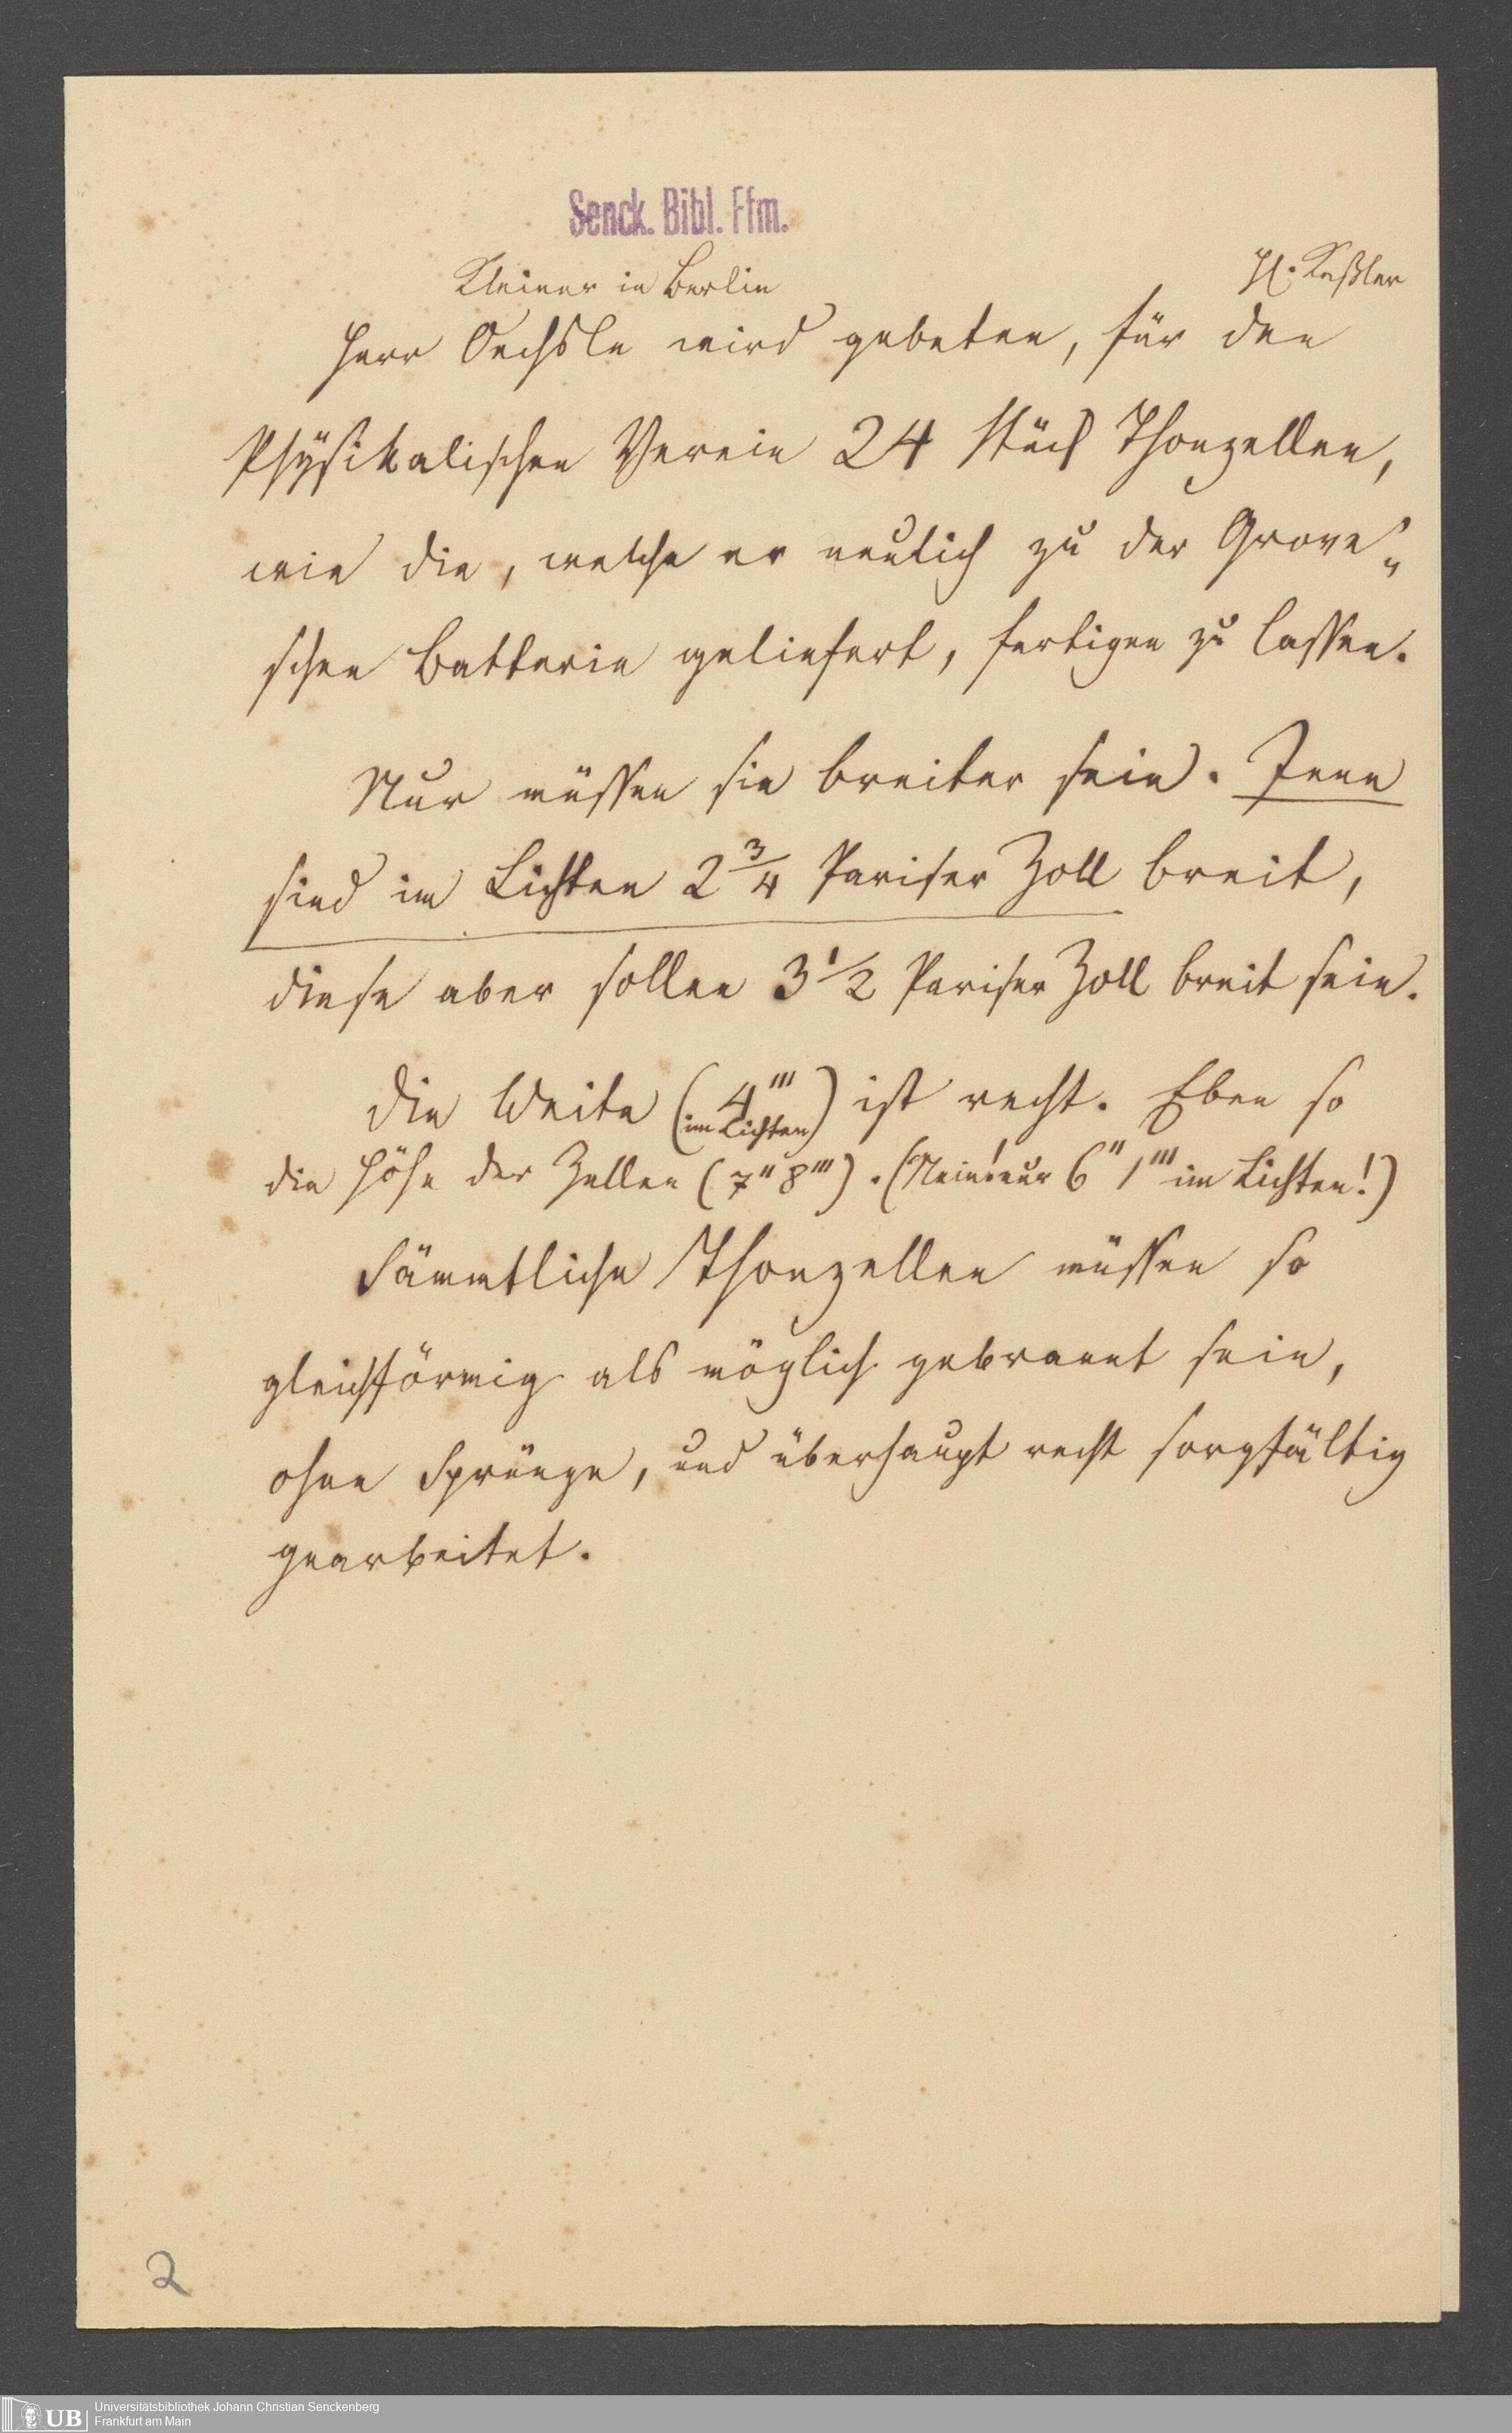 Senck. Bibl. Ffm.
Kleiner in Berlin
H. Keßler
Herr Oechsle wird gebeten, für den
Physikalischen Verein 24 Stück Thonzellen,
wie die, welche er neulich zu der Grove„
schen Batterie geliefert, fertigen zu lassen.
Nur müssen sie breiter sein. Jene
sind im Lichten 2 3/4 Pariser Zoll breit,
diese aber sollen 3 1/2 Pariser Zoll breit sein.
Die Weite (4''' im Lichten) ist recht. Eben so
die Höhe der Zellen (7'' 8'''). (Nein! nur 6'' 1''' im Lichten!)
Sämmtliche Thonzellen müssen so
gleichförmig als möglich gebrannt sein,
ohne Sprünge, und überhaupt recht sorgfältig
gearbeitet.
2
UB Universitätsbibliothek Johann Christian Senckenberg
Frankfurt am Main